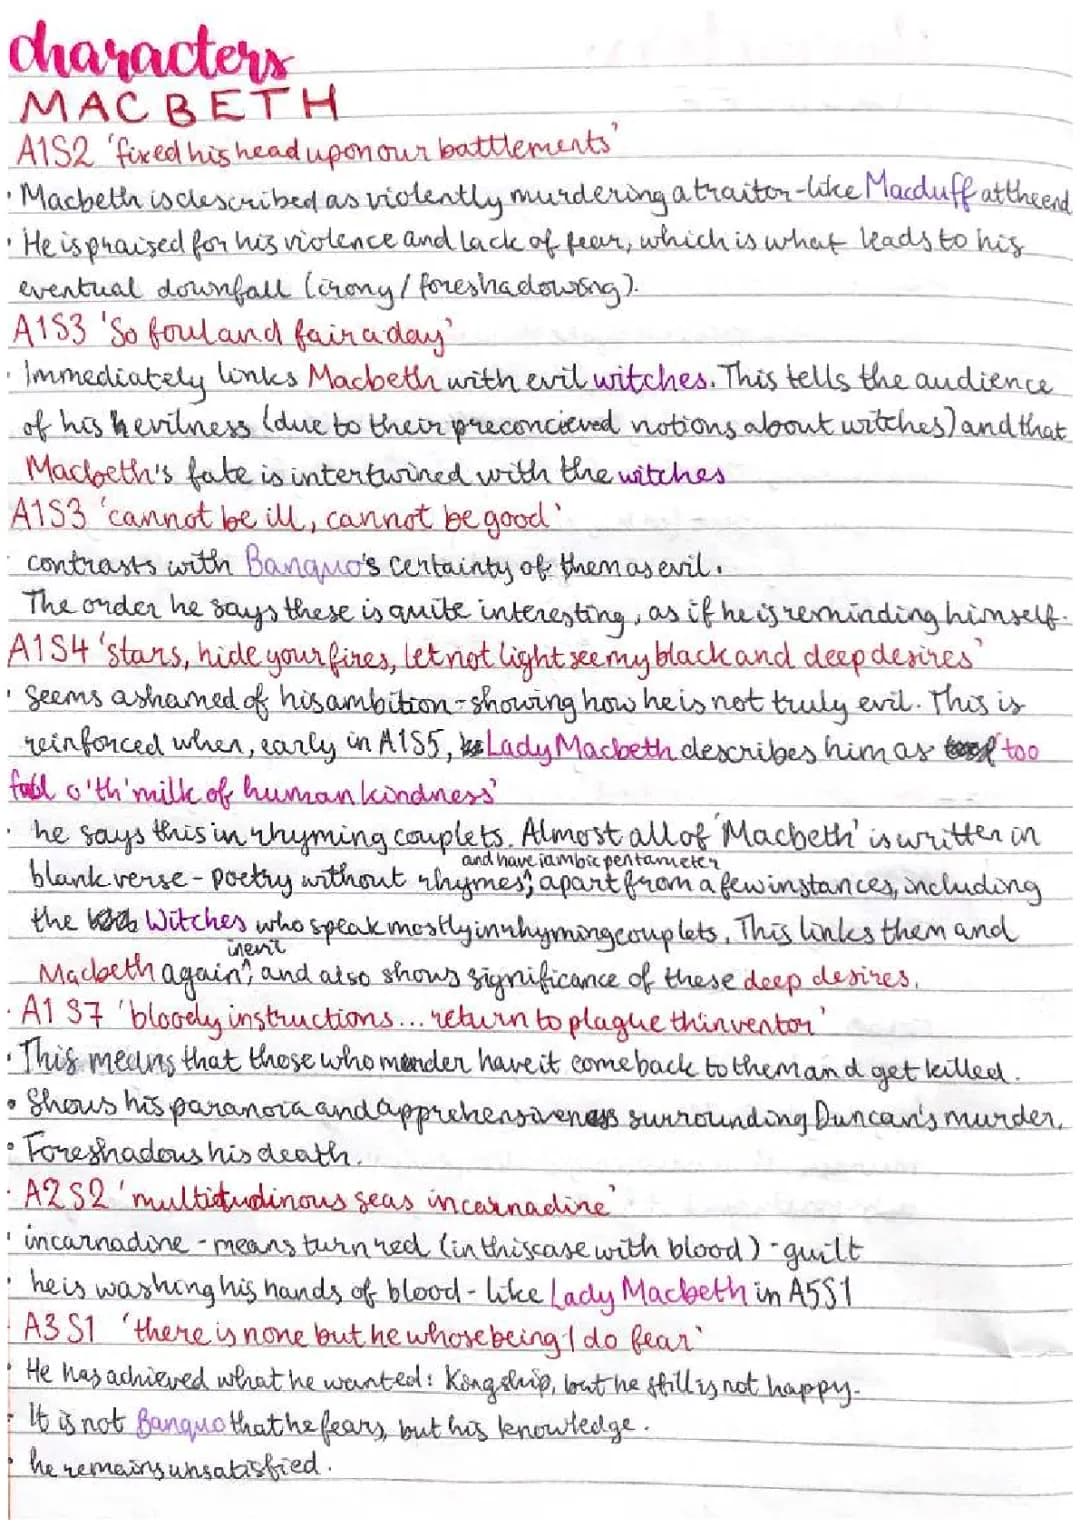 characters
MACBETH
A1S2 'fixed his head upon our battlements'
· Macbeth is described as violently murdering a traitor-like Macduff at the end
· He is praised for his violence and lack of fear, which is what leads to his
eventual downfall (irony/foreshadowing).
A1S3 'So foul and fair a day'
· Immediately links Macbeth with evil witches. This tells the audience
of his evilness (due to their preconcieved notions about witches) and that
Macbeth's fate is intertwined with the witches
A1S3 'cannot be ill, cannot be good'
· contrasts with Banquo's certainty of them as evil.
The order he says these is quite interesting, as if he is reminding himself.
A1S4 'stars, hide your fires, let not light see my black and deep desires'
· Seems ashamed of his ambition - showing how he is not truly evil. This is
reinforced when, early in A1S5, Lady Macbeth describes him as 'too
full o'th'milk of human kindness'
· he says this in rhyming couplets. Almost all of 'Macbeth' is written in
and have iambic pentameter
blank verse - poetry without rhymes, apart from a few instances, including
the Witches who speak mostly in rhyming couplets. This links them and
in evil
Macbeth again, and also shows significance of these deep desires.
· A1 S7 'bloody instructions... return to plague th'inventor'
· This means that those who murder have it come back to them and get killed.
• Shows his paranoia and apprehensiveness surrounding Duncan's murder.
• Foreshadows his death.
· A2S2 'multitudinous seas incarnadine'
· incarnadine - means turn red (in this case with blood) - guilt
· he is washing his hands of blood - like Lady Macbeth in A5S1
A3 S1 'there is none but he whose being I do fear'
· He has achieved what he wanted: Kingship, but he still is not happy.
· It is not Banquo that he fears, but his knowledge.
· he remains unsatisfied.